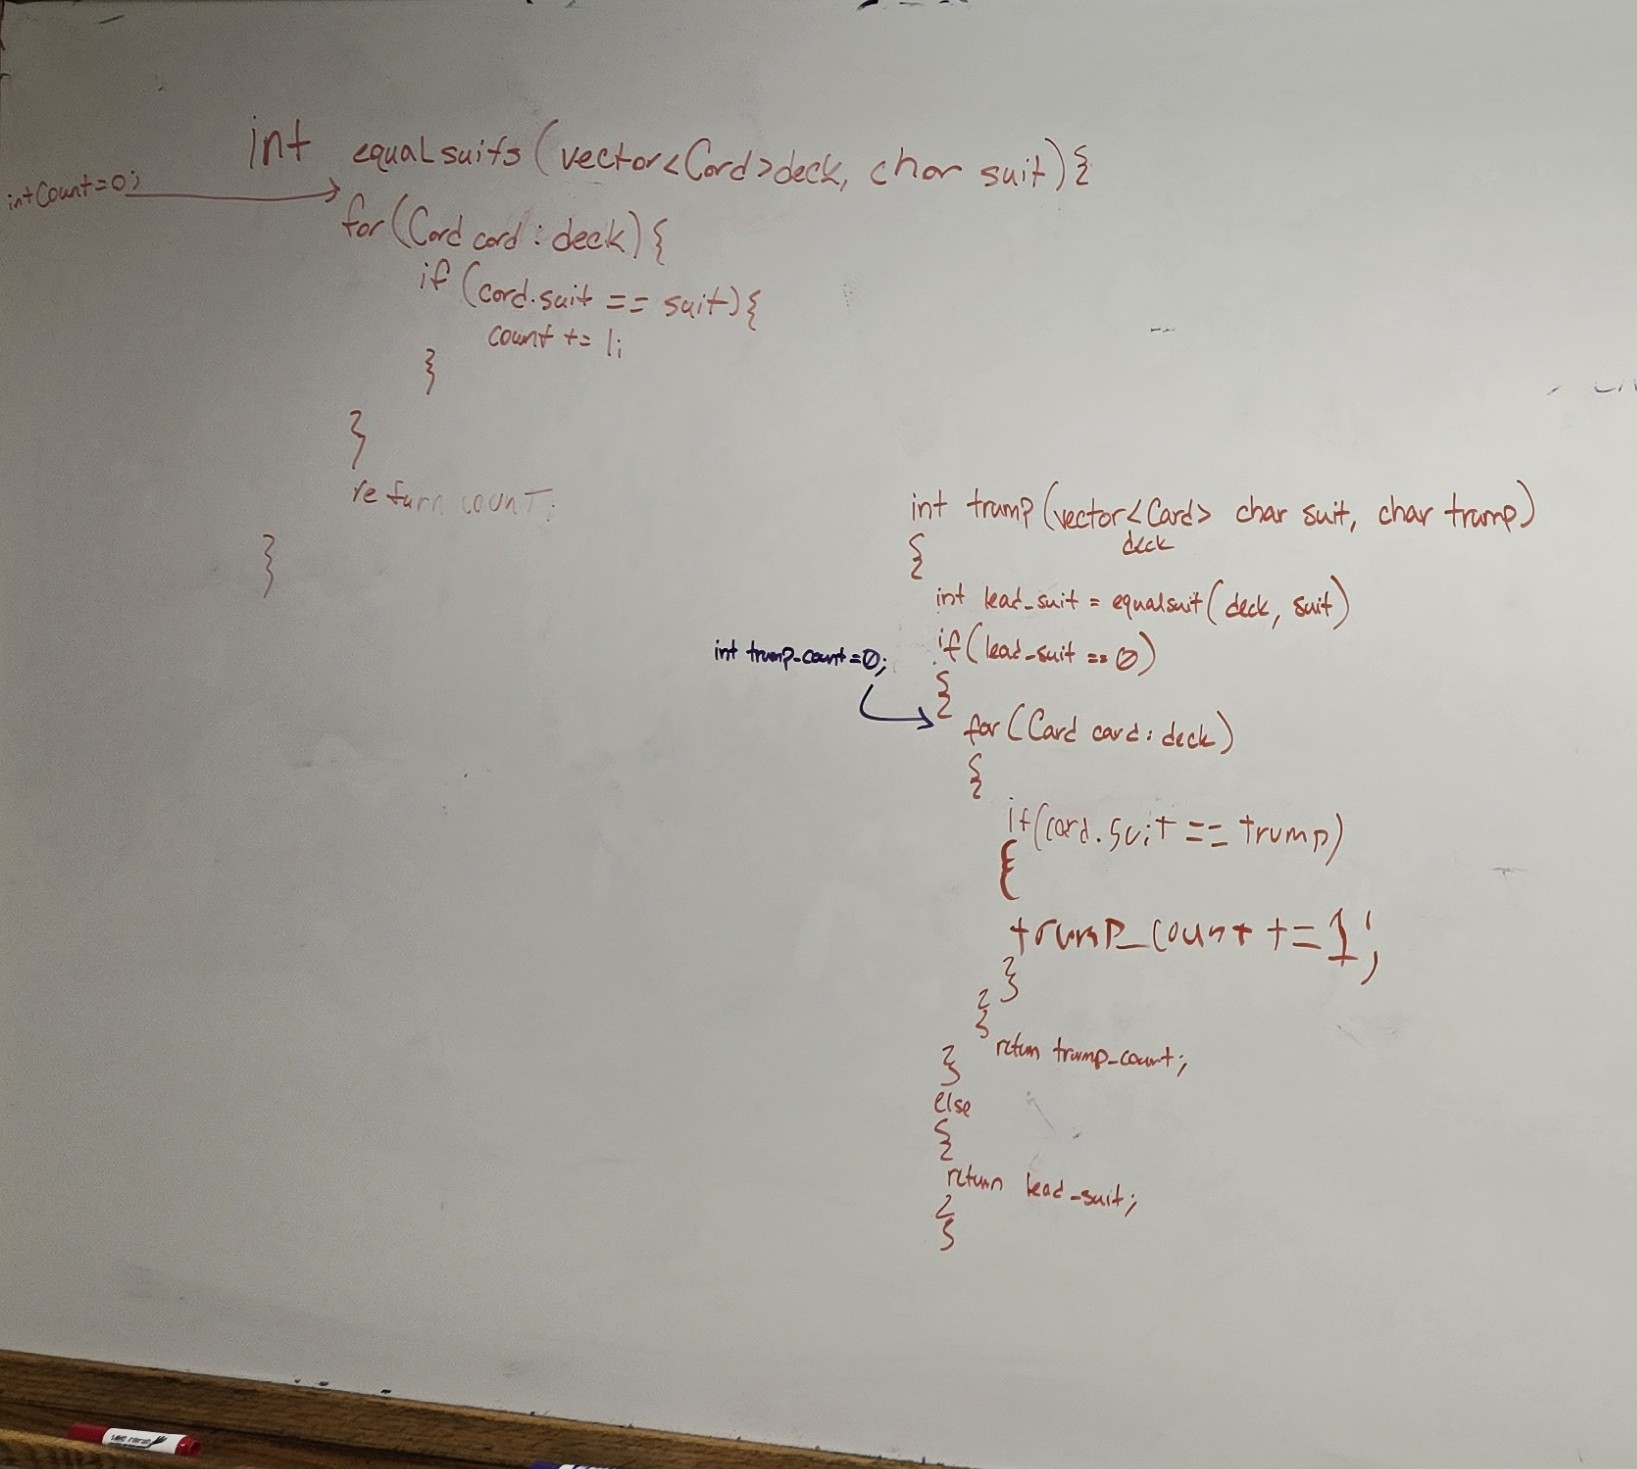 int equalsuits(vector<Card>deck, char suit){
int Count=0;
for(Card card: deck){
if (card.suit == suit){
count += 1;
}
}
return count;
}
int trump(vector<Card> char suit, char trump)
deck
{
int lead_suit = equalsuit(deck, suit)
if(lead_suit == 0)
int trump_count=0;
{
for(Card card: deck)
{
if(card.suit == trump)
{
trump_count +=1;
}
}
return trump_count;
}
else
{
return lead_suit;
}